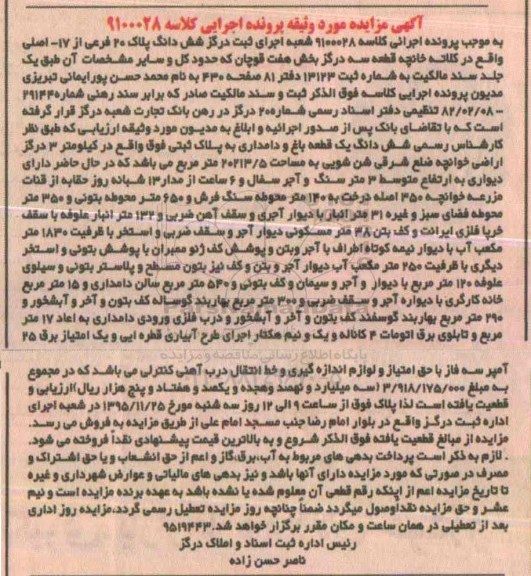 آگهی مزایده مورد وثیقه پرونده اجرایی کلاسه ۹۱۰۰۰۲۸
به موجب پرونده اجرائی کلاسه ۹۱۰۰۰۲۸ شعبه اجرای ثبت درگز شش دانگ پلاک ۲۰ فرعی از ۱۷- اصلی
واقع در کلاته خانچه قطعه سه درگز بخش هفت قوچان که حدود کل و سایر مشخصات آن طبق یک
جلد سند مالکیت به شماره ثبت ۱۳۱۲۳ دفتر ۸۱ صفحه ۴۳۰ به نام محمد حسن پورایمانی تبریزی
مدیون پرونده اجرایی کلاسه فوق الذکر ثبت و سند مالکیت صادر که برابر سند رهنی شماره ۲۹۱۴۴
- ۸۲/۰۲/۰۸ تنظیمی دفتر اسناد رسمی شماره۲۰ درگز در رهن بانک تجارت شعبه درگز قرار گرفته
است کـه با تقاضای بانک پس از صدور اجرائیه و ابلاغ به مدیـون مورد وثیقه ارزیابـی که طبق نظر
کارشناس رسمی شش دانگ یک قطعه باغ و دامداری به پلاک ثبتی فوق واقع در کیلومتر ۳ درگز
اراضی خوانچه ضلع شرقی شن شویی به مساحت ۲۰۲۱۳/۵ متر مربع می باشد که در حال حاضر دارای
دیواری به ارتفاع متوسط ۳ متر سنگ و آجر سفال و ۶ ساعت از مدار۱۳ شبانه روز حقابه از قنات
مزرعـه خوانچـه ۳۵۰ اصله درخت به ۱۴۰ متر محوطه سنگ فرش و ۶۵۰ متـر محوطه بتونی و ۳۵۰ متر
محوطه فضای سبز و غیره ۳۱ متر انبار با دیوار آجری و سقف آهن ضربی و ۱۳۲ متر انبار علوفه با سقف
خرپا فلزی ایرانت و کف بتن ۳۸ متر مسـکونی دیوار آجر و سـقف ضربی و استخر با ظرفیت ۱۸۳۰ متر
مکعب آب با دیوار نیمه کوتاه اطراف با آجر وبتن و پوشش کف ژئو ممبران با پوشش بتونی و استخر
دیگری با ظرفیت ۲۵۰ متر مکعب آب دیوار آجر و بتن و کف نیز بتون مسـطح و پلاستر بتونی و سیلوی
علوفه ۱۲۰ متر مربع با دیوار و آجر و سیمان و کف بتونی و ۵۴۰ متر مربع سالن دامداری و ۱۵ متر مربع
خانه کارگری با دیواره آجر و سـقف ضربی و ۳۰۰ متر مربع بهاربند گوسـاله کف بتون و آجر و آبشخور و
۲۹۰ متر مربع بهاربند گوسفند کف بتون و آجر و آبشخور و درب فلزی ورودی دامداری به اعاد ۱۷ متر
مربع و تابلوی برق اتومات ۴ کاناله و یک و نیم هکتار اجرای طرح آبیاری قطره ایی و یک امتیاز برق ۲۵
پایگاه اطلاع رسانی مناقصه و مزایده
آمپر سـه فاز با حق امتیاز و لوازم اندازه گیری و خط انتقال درب آهنی کنترلی می باشد که در مجموع
بـه مبلغ ۳/۹۱۸/۱۷۵/۰۰۰ (سـه میلیارد و نهصد وهجده و یکصد و هفتـاد و پنج هزار ریال)ارزیابی و
قطعیت یافته اسـت لذا پلاک فوق از ساعت ۹ الی ۱۲ روز سه شنبه مورخ ۱۳۹۵/۱۱/۲۵ در شعبه اجرای
اداره ثبت درگـز واقـع در بلوار امام رضا جنب مسـجد امام علی از طریق مزایده به فروش می رسـد.
مزایده از مبالغ قطعیت یافته فوق الذکر شـروع و به بالاترین قیمت پیشنهادی نقداً فروخته می شود.
. لازم به ذکر است پرداخت بدهی های مربوط به آب،برق،گاز و اعم از حق انشـعاب و یا حق اشـتراک و
مصرف در صورتی که مورد مزایده دارای آنها باشد و نیز بدهی های مالیاتی و عوارض شهرداری و غیره
تا تاریخ مزایده اعم از اینکه رقم قطعی آن معلوم شده یا نشده باشد به عهده برنده مزایده است و نیم
عشـر و حق مزایده نقداًوصول میگردد ضمناً چنانچه روز مزایده تعطیل رسمی گردد،مزایده روز اداری
بعد از تعطیلی در همان ساعت و مکان مقرر برگزار خواهد شد.۹۵۱۹۴۴۳
رئیس اداره ثبت اسناد و املاک درگز
ناصر حسن زاده